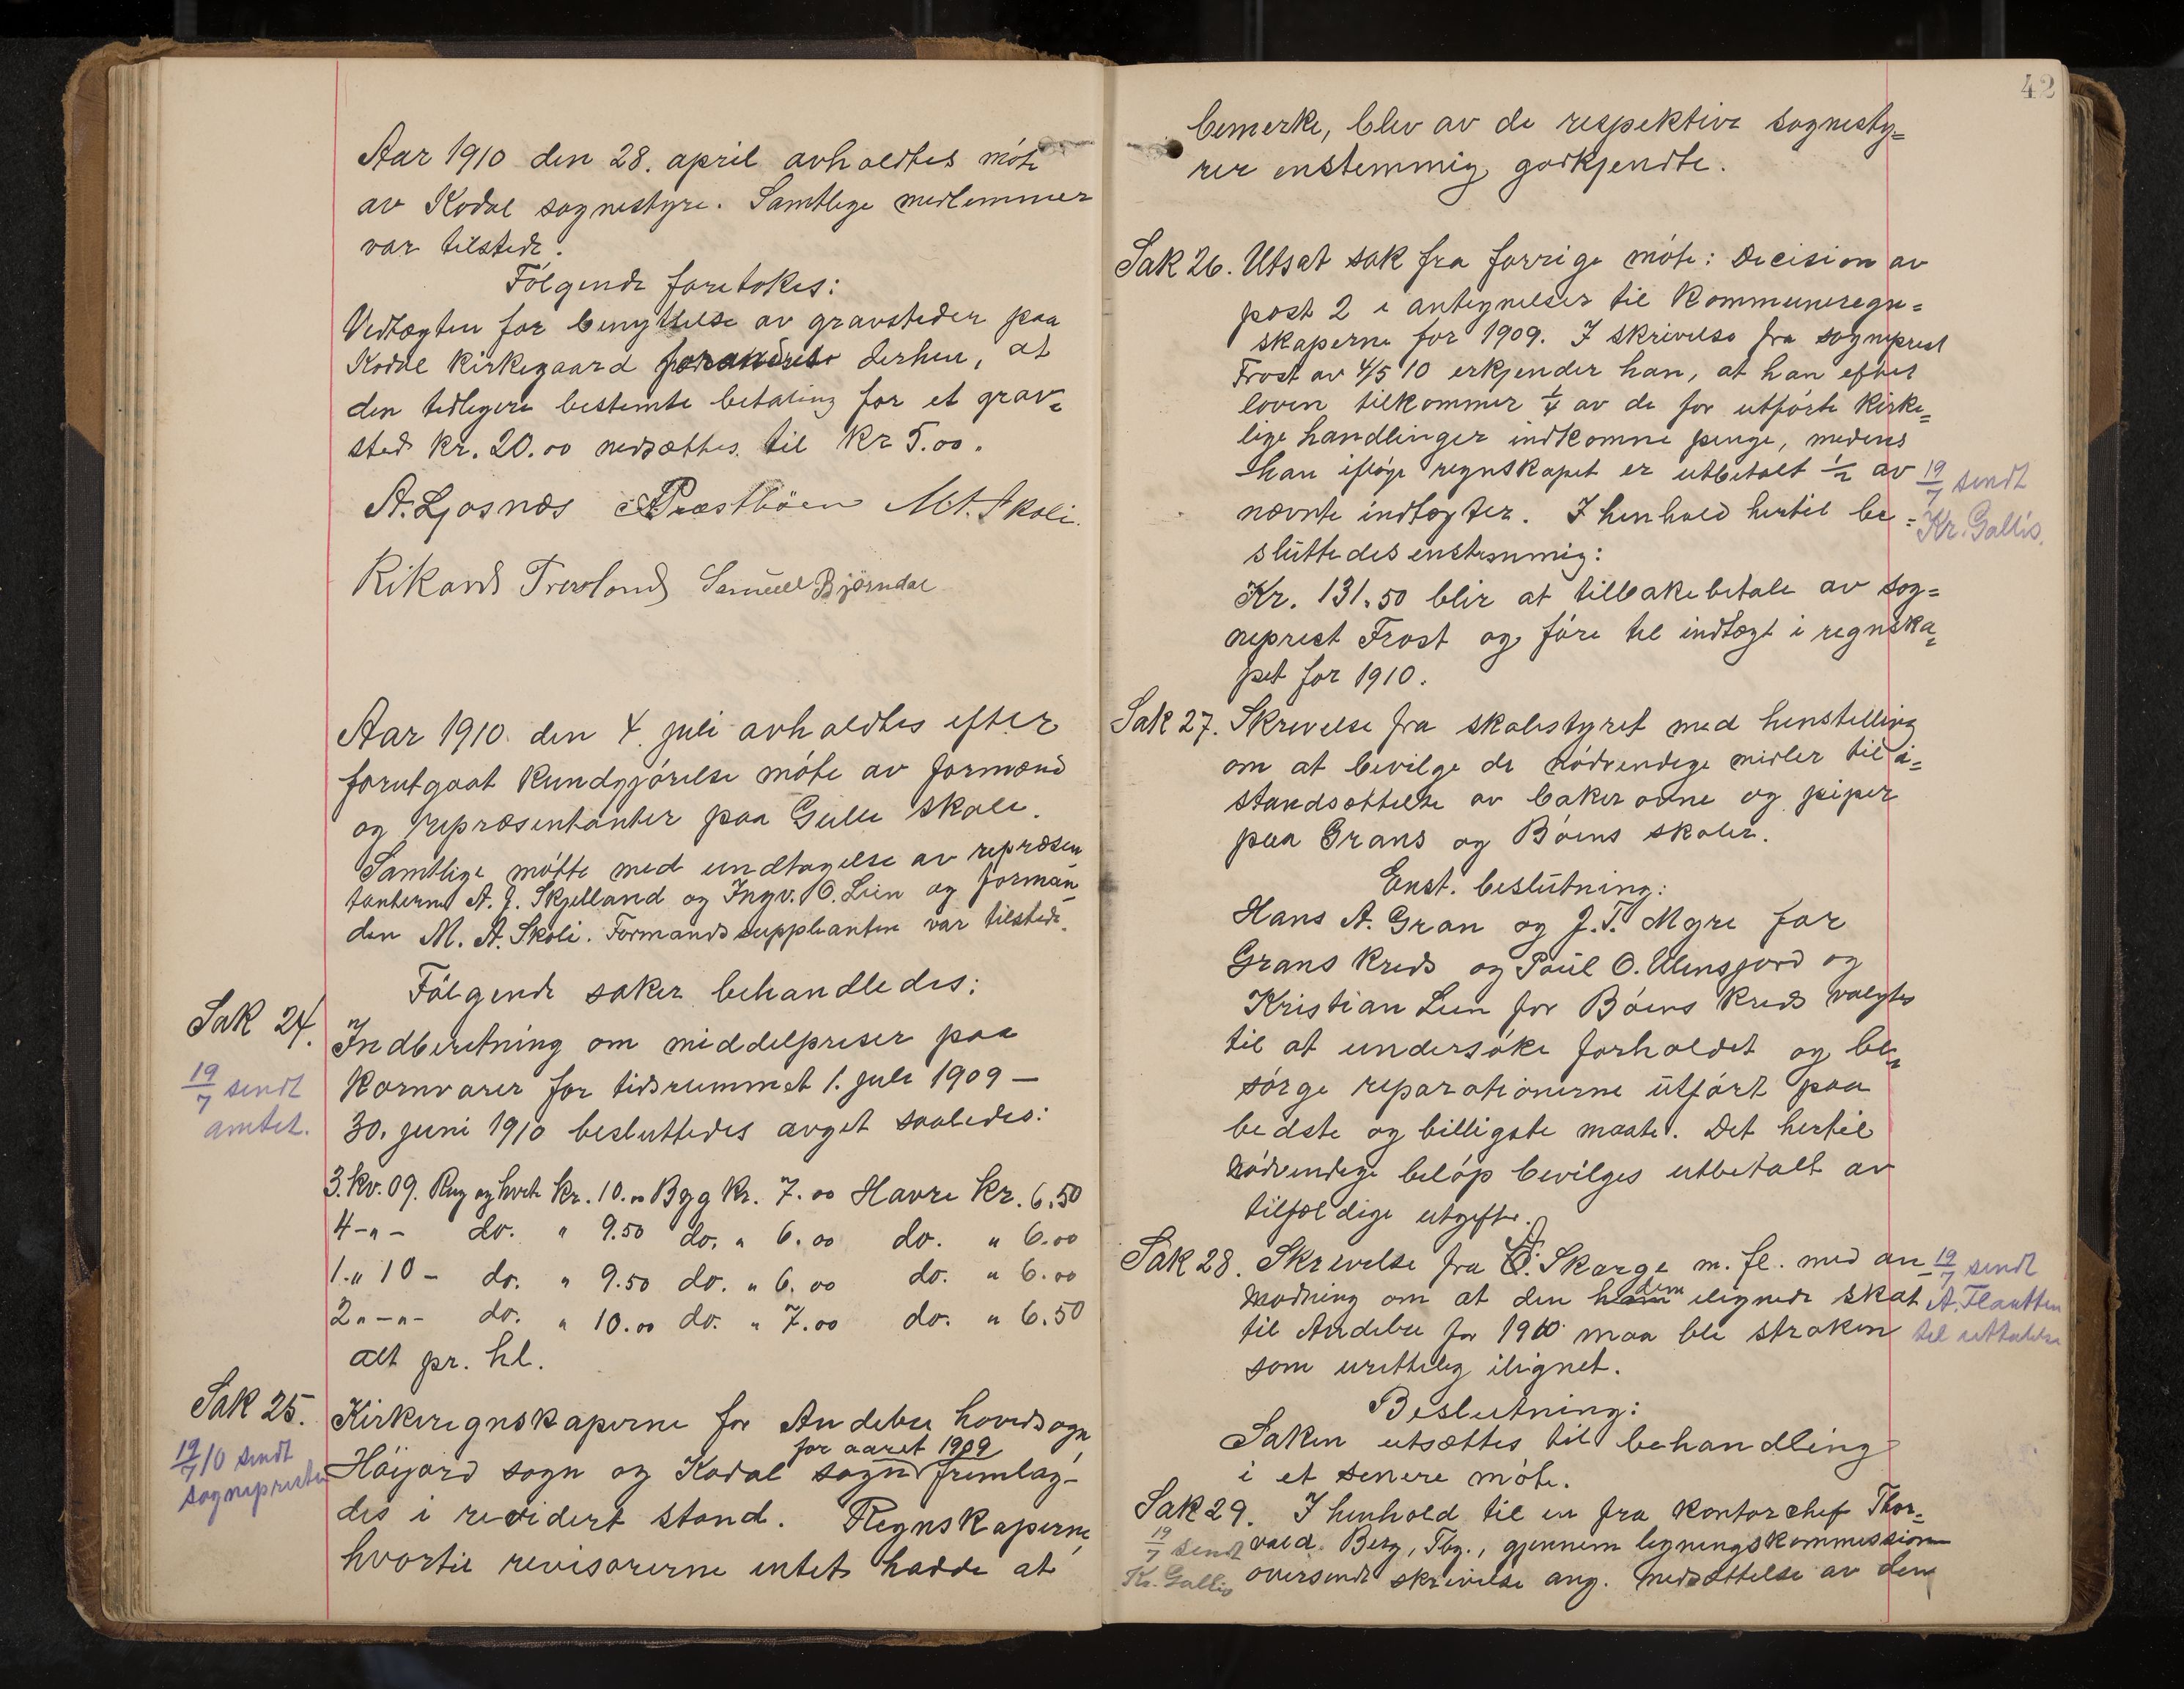 Aar 1910 den 28. april avholdtes möte
av Kodal sognestyre. Samtlige medlemmer
var tilstede.
Fölgende foretokes:
Vedtægten for benyttelse av gravsteder paa
Kodal kirkegaard forandres derhen, at
den tidligere bestemte betaling for et grav=
sted kr. 20.00 nedsættes til kr 5.00.
A. Ljosnæs Præstböen M.A. Skoli.
Rikard Trevland Samuel Björndal
Aar 1910 den 4. juli avholdtes efter
forutgaat kundgjörelse möte av formænd
og repræsentanter paa Gulli skole.
Samtlige mötte med undtagelse av repræsen
tanterne A. J. Skjelland og Ingv. O. Lien og formæn
den M. A. Skoli. Formandssuppleanten var tilstede.
Fölgende saker behandledes:
Sak 24.
Indberetning om middelpriser paa
kornvarer for tidsrummet 1. juli 1909 –
30. juni 1910 besluttedes avget saaledes:
19/7 sendt
amtet.
3. kv. 09. Rug og hvete kr. 10.00 Byg kr. 7.00 Havre kr. 6.50
4 – " – do. " 9.50 do. " 6.00 do. " 6.00
1. " 10 – do. " 9.50 do. " 6.00 do. " 6.00
2 " – " – do. " 10.00 do. " 7.00 do. " 6.50
alt pr. hl.
Sak 25.
Kirkeregnskaperne for Andebu hovedsogn
for aaret 1909
Höijord sogn og Kodal sogn fremlag-
des i revidert stand. Regnskaperne,
hvortil revisorerne intet hadde at
19/7 10 sendt
sognepresten
42
bemerke, blev av de respektive sognesty=
rer enstemmig godkjendte.
Sak 26. Utsat sak fra forrige möte: Decision av
post 2 i antegnelser til kommuneregn=
skaperne for 1909. I skrivelse fra sogneprest
Frost av 4/5 10 erkjender han, at han efter
loven tilkommer 1/4 av de for utförte kirke=
lige handlinger indkomne penge, medens
han iflöge regnskapet er utbetalt 1/2 av
nævnte indtægter. I henhold hertil be=
sluttedes enstemmig:
19/7 sendt
Kr. Gallis.
Kr. 131.50 blir at tilbakebetale av sog=
neprest Frost og före til indtægt i regnska=
pet for 1910.
Sak 27. Skrivelse fra skolestyret med henstilling
om at bevilge de nödvendige midler til i=
standsættelse av bakerovne og piper
paa Grans og Böens skoler.
Enst. beslutning:
Hans A. Gran og J. T. Myre for
Grans kreds og Paul O. Ulensjord og
Kristian Lien for Böens kreds valgtes
til at undersöke forholdet og be=
sörge reparationerne utfört paa
bedste og billigste maate. Det hertil
nödvendige belöp bevilges utbetalt av
tilfældige utgifter.
Sak 28. Skrivelse fra O. Skarge m. fl. med an-
modning om at den dem ilignede skat
til Andebu for 1910 maa bli stroken
som urettelig ilignet.
19/7 sendt
A. Flaatten
til uttalelse
Beslutning:
Saken utsættes til behandling
i et senere möte.
Sak 29. I henhold til en fra kontorchef Thor=
vald Berg, Tbg., gjennem ligningskommission
oversendt skrivelse ang. nedsættelse av den
19/7 sendt
Kr. Gallis